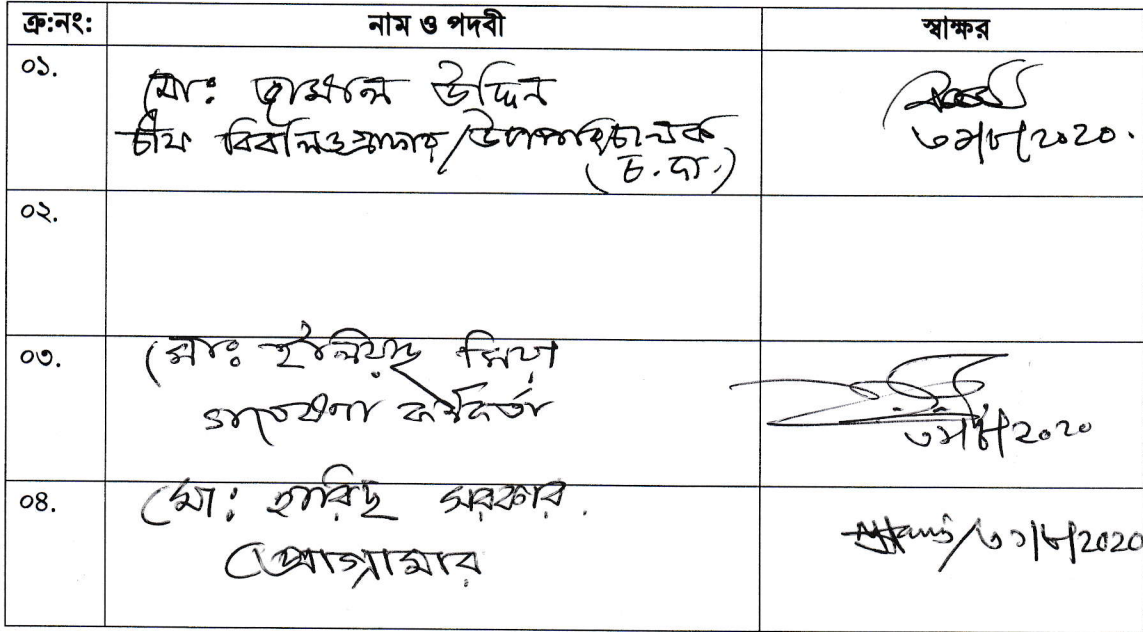 ক্র:নং: নাম ও পদবী স্বাক্ষর
০১. মো: জামাল উদ্দিন
চীফ বিবলিওগ্রাফার/উপপরিচালক
(চ.দা.) ৩১/৮/২০২০.
০২.
০৩. মোঃ ইলিয়াছ মিয়া
গবেষণা কর্মকর্তা ৩১/৮/২০২০
০৪. মো: হারিছ সরকার.
প্রোগ্রামার ৩১/৮/২০২০